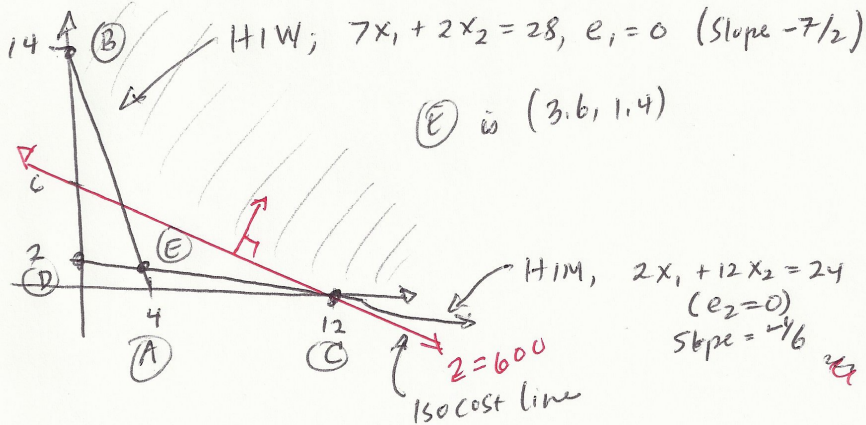 14 (B) HIW; 7x₁ + 2x₂ = 28, e₁ = 0 (Slope -7/2)
(E) is (3.6, 1.4)
6
2 (E)
(D) HIM, 2x₁ + 12x₂ = 24
4 12 (e₂=0)
(A) (C) Slope = -1/6
Z=600
Isocost line